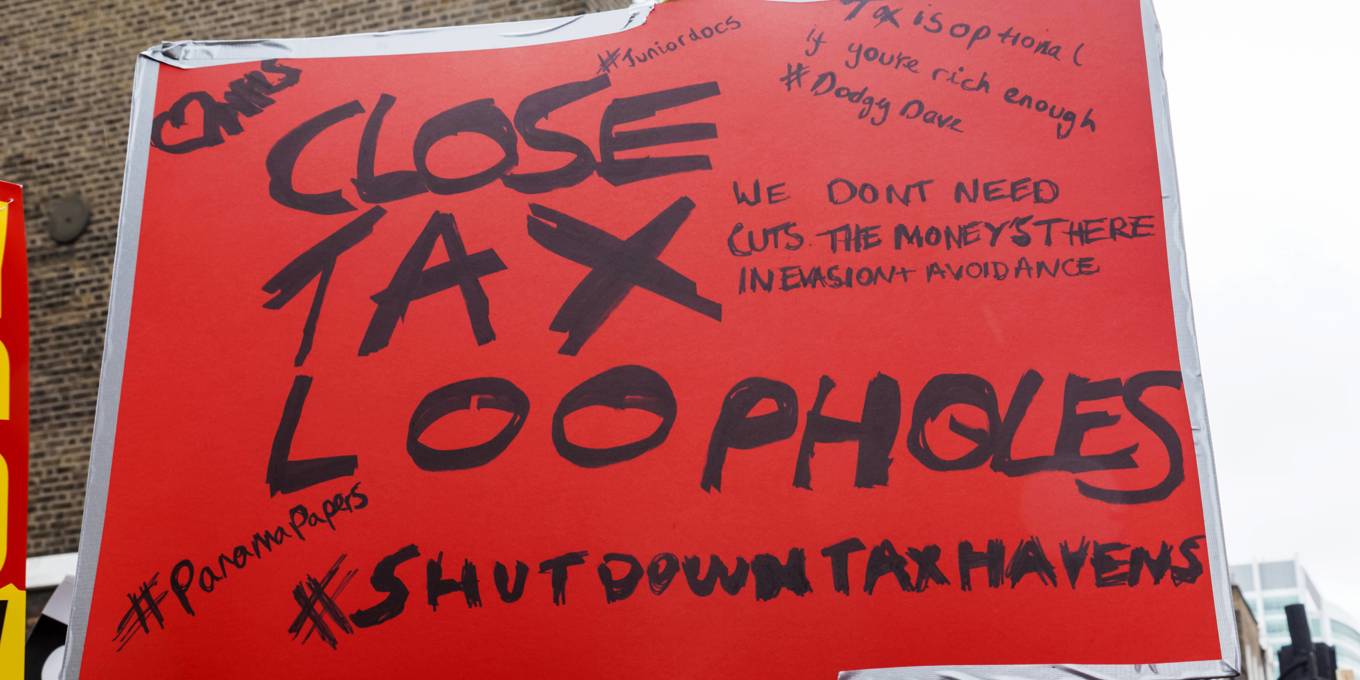 ♡NHS
#Juniordocs
Tax is optional
if youre rich enough
#Dodgy Dave
CLOSE
TAX
LOOPHOLES
WE DONT NEED
CUTS THE MONEY'S THERE
IN EVASION + AVOIDANCE
#PanamaPapers
#SHUTDOWNTAXHAVENS